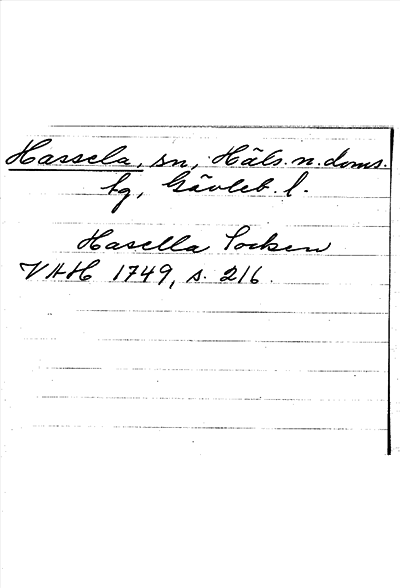 Hassela, sn, Häls. n. doms.
tg, Gävleb. l.
Hasella Socken
VAH 1749, s. 216.